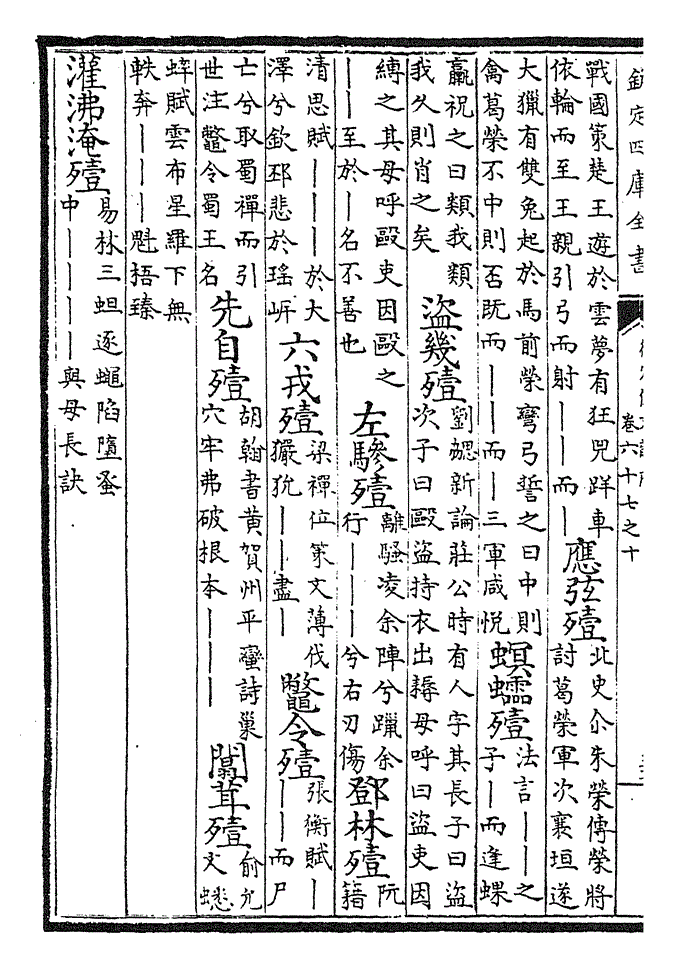 欽定四庫全書
卷六十七之十
戰國策楚王遊於雲夢有狂兕䍧車
依輪而至王親引弓而射丨丨而丨
應弦殪
北史尒朱榮傳榮將
討葛榮軍次襄垣遂
大獵有雙兔起於馬前榮彎弓誓之曰中則
禽葛榮不中則否既而丨丨而丨三軍咸悅
螟蠕殪
法言丨丨之
子丨而逢蜾
蠃祝之曰類我類
我久則肖之矣
盜幾殪
劉勰新論莊公時有人字其長子曰盜
次子曰毆盜持衣出耨母呼曰盜吏因
縛之其母呼毆吏因毆之
丨丨至於丨名不善也
左驂殪
離騷凌余陣兮躐余
行丨丨丨兮右刃傷
鄧林殪
阮
籍
清思賦丨丨丨於大
澤兮欽邳悲於瑤岍
六戎殪
梁禪位策文薄伐
玁狁丨丨盡丨
鼈令殪
張衡賦丨
丨丨而尸
亡兮取蜀禪而引
世注鼈令蜀王名
先自殪
胡翰書黄賀州平蠻詩巢
穴牢弗破根本丨丨丨
闒茸殪
俞允
文蟋
蟀賦雲布星羅下無
軼奔丨丨丨魁捂臻
濯沸淹殪
易林三蛆逐蠅陷墮蚤
中丨丨丨丨與母長訣